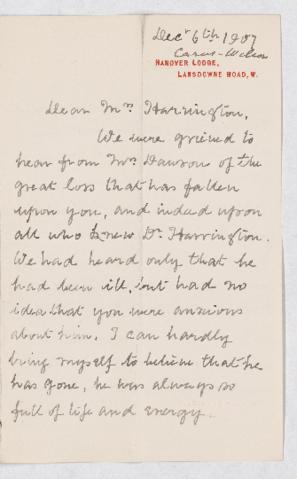 Decr 6th 1907
Carus-Wilson
HANOVER LODGE,
LANSDOWNE ROAD, W.
Dear Mrs Harrington,
We were grieved to
hear from Mrs Dawson of the
great loss that has fallen
upon you, and indeed upon
all who knew Dr. Harrington.
We had heard only that he
had been ill, but had no
idea that you were anxious
about him. I can hardly
bring myself to believe that he
has gone, he was always so
full of life and energy.